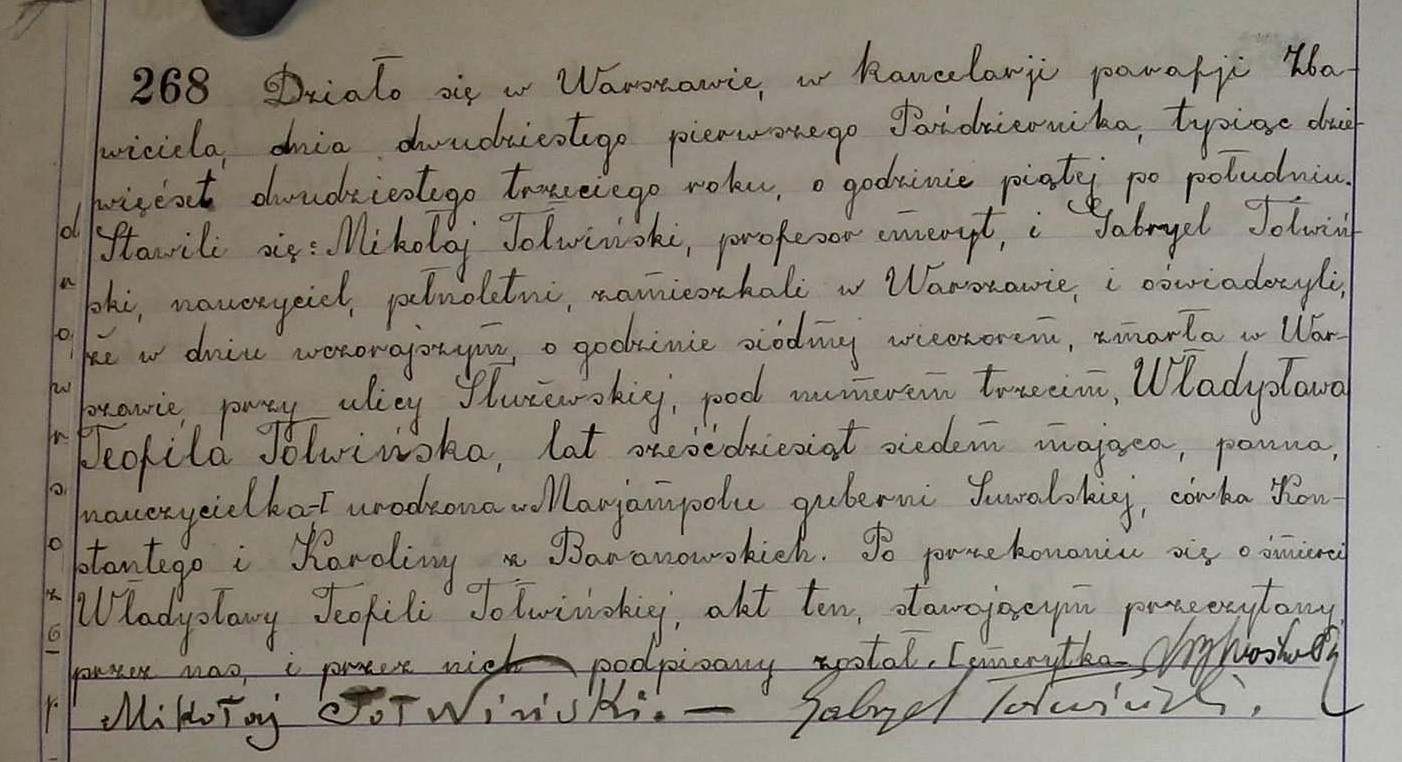 268 Działo się w Warszawie, w kancelarji parafji Zba-
wiciela, dnia dwudziestego pierwszego Października, tysiąc dzie-
więćset dwudziestego trzeciego roku, o godzinie piątej po południu.
Stawili się: Mikołaj Tołwiński, profesor emeryt, i Gabryel Tołwiń-
ski, nauczyciel, pełnoletni, zamieszkali w Warszawie, i oświadczyli,
że w dniu wczorajszym, o godzinie siódmej wieczorem, zmarła w War-
szawie, przy ulicy Służewskiej, pod numerem trzecim, Władysława
Teofila Tołwińska, lat sześćdziesiąt siedem mająca, panna,
nauczycielka-[ urodzona w Marjampolu guberni Suwalskiej, córka Kon-
stantego i Karoliny z Baranowskich. Po przekonaniu się o śmierci
Władysławy Teofili Tołwińskiej, akt ten, stawającym przeczytany,
przez nas, i przez nich podpisany został. [emerytka
Mikołaj Tołwiński. — Gabryel Tołwiński.